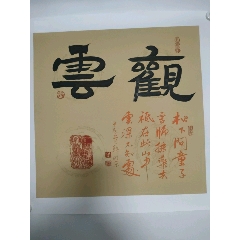 觀雲
松下問童子
言師採藥去
祇在此山中
雲深不知處